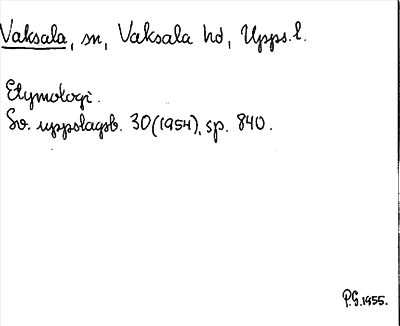 Vaksala, sn, Vaksala hd, Upps. l.
Etymologi.
Sv. uppslagsb. 30 (1954), sp. 840.
P.G. 1955.